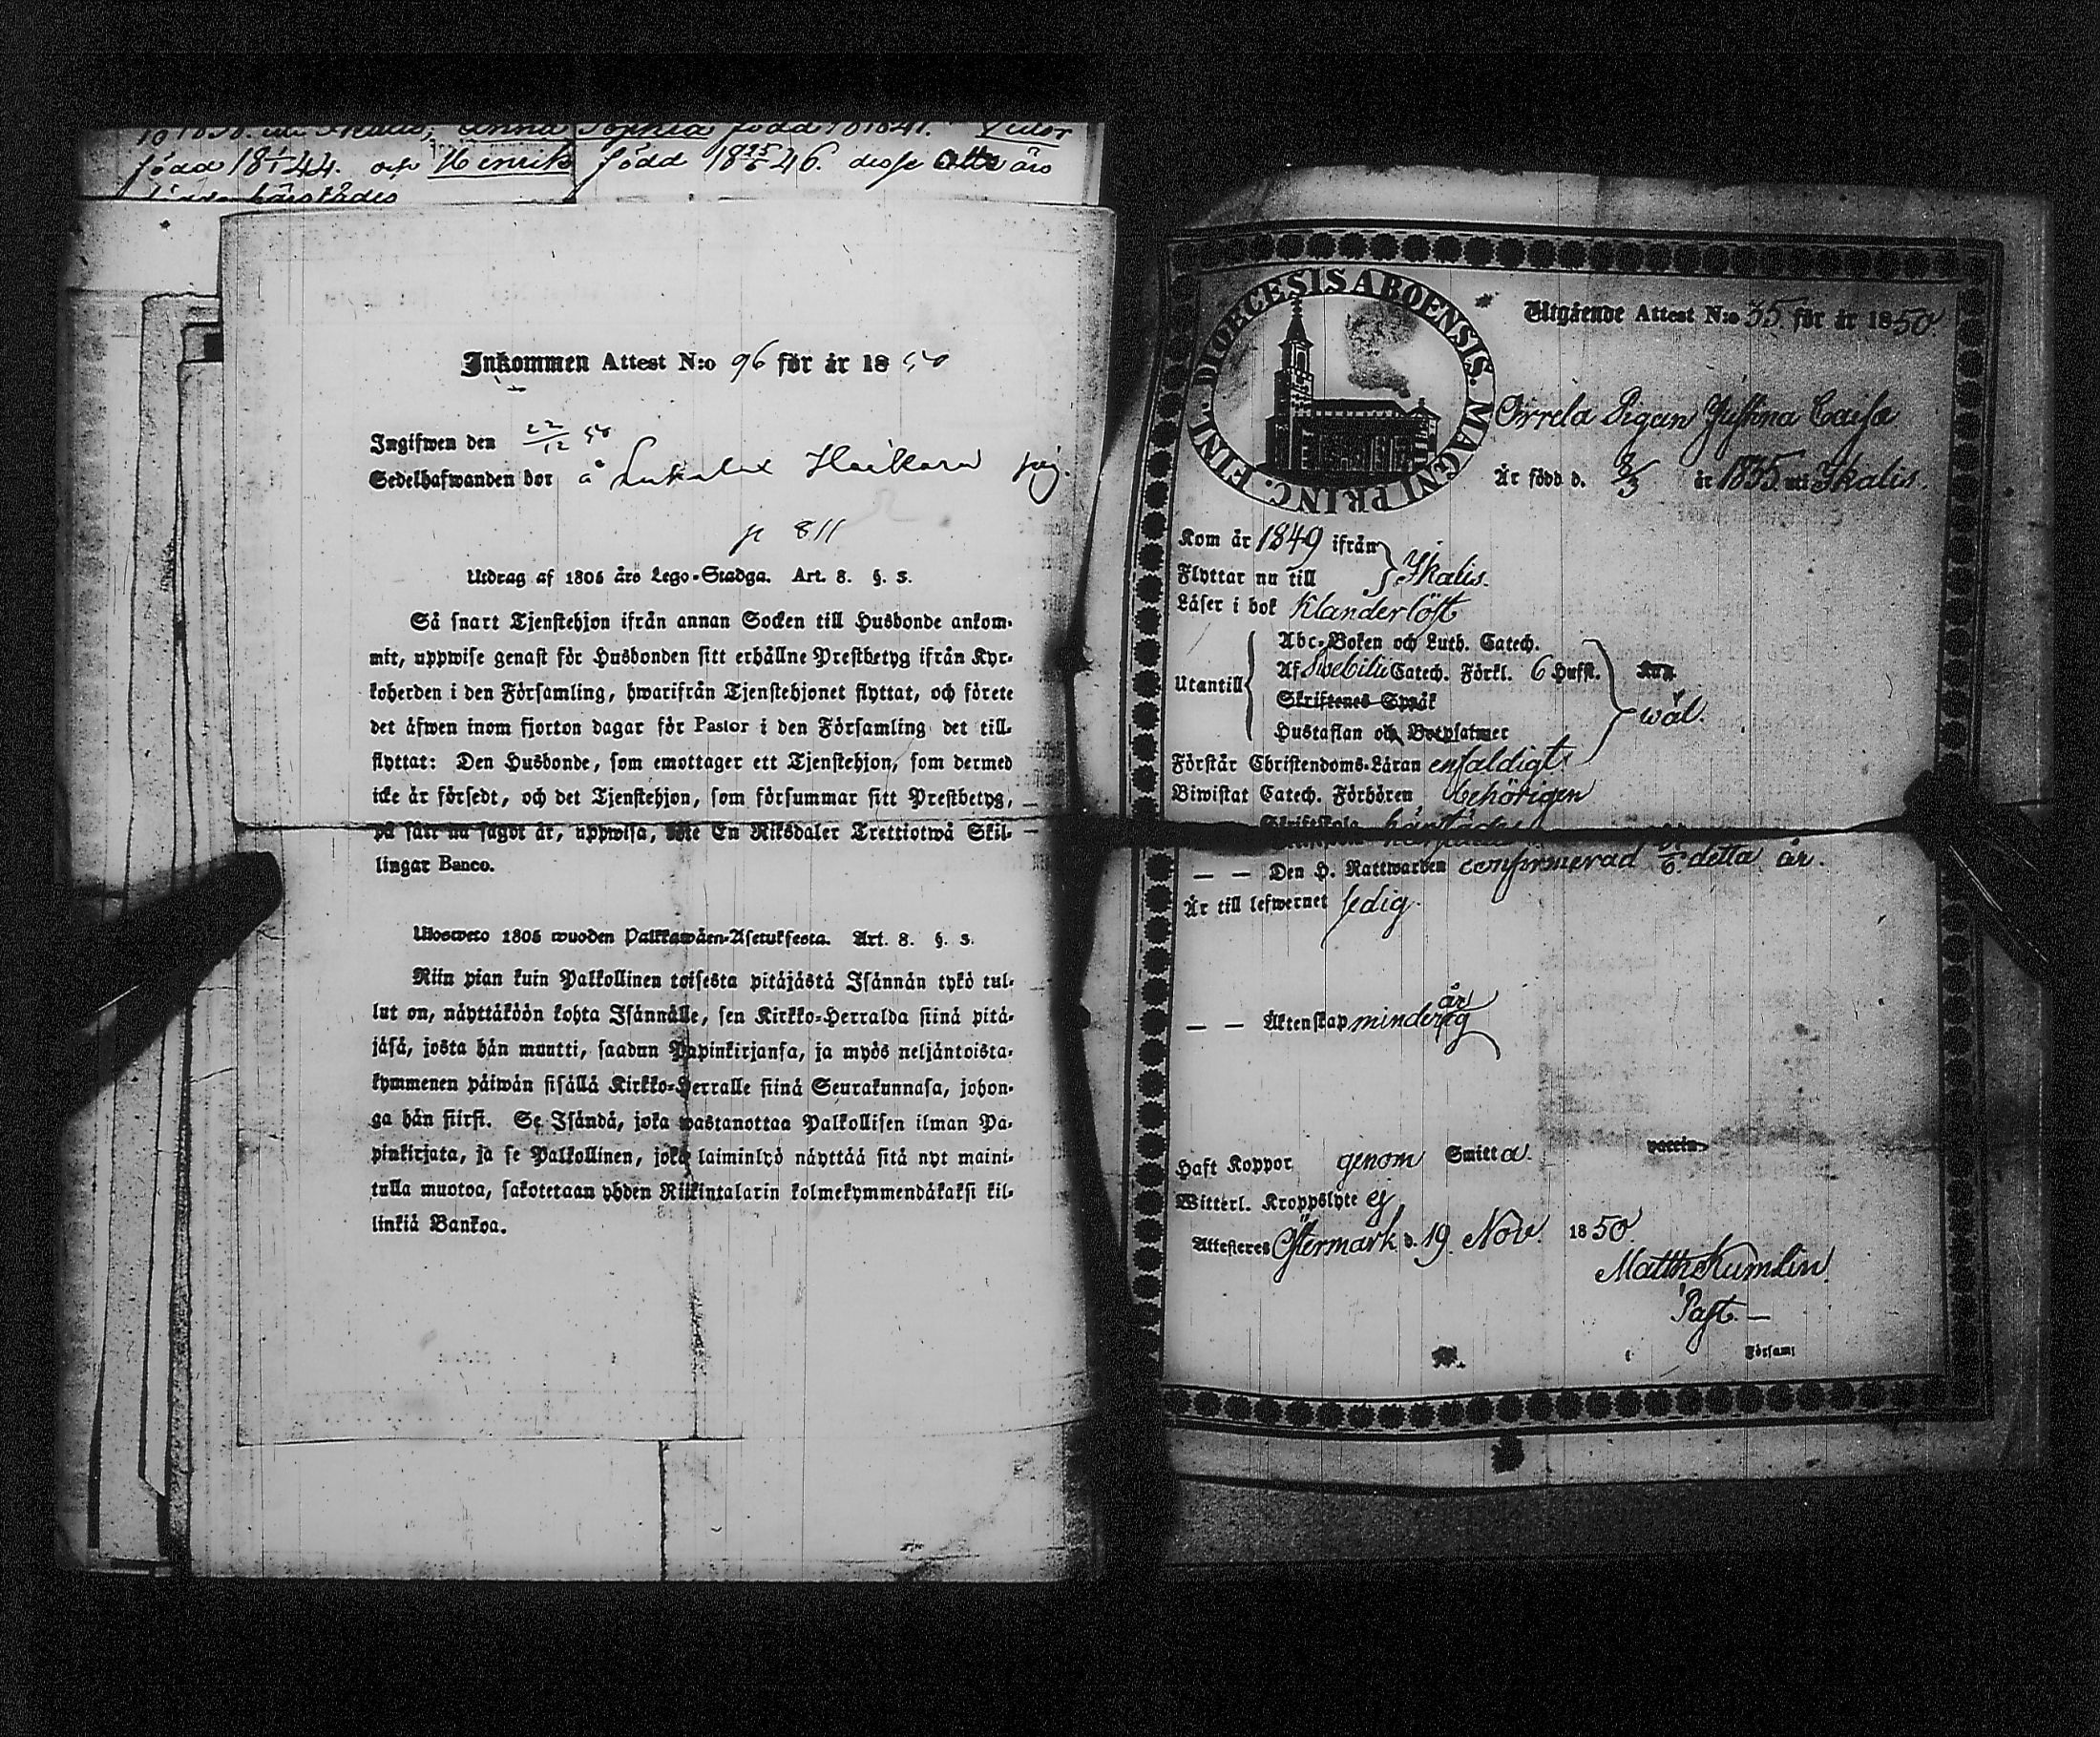 Anna Sophia född
född 18 1/1 44. och Henrik född 18 25/6 46. desse äro
härstädes
Inkommen Attest N:o 96 för år 1850
Ingifwen den 22/12 50
Sedelhafwanden bor å Haikara pig.
p 811
Utdrag af 1805 års Lego-Stadga. Art. 8. §. 3.
Så snart Tjenstehjon ifrån annan Socken till Husbonde ankom-
mit, uppwise genast för Husbonden sitt erhållne Prestbetyg ifrån Kyr-
koherden i den Församling, hwarifrån Tjenstehjonet flyttat, och förete
det äfwen inom fjorton dagar för Pastor i den Församling det till-
flyttat: Den Husbonde, som emottager ett Tjenstehjon, som dermed
icke är försedt, och det Tjenstehjon, som försummar sitt Prestbetyg,
på sätt nu sagdt är, uppwisa, böte En Riksdaler Trettiotwå Skil-
lingar Banco.
Ulosweto 1805 wuoden Palkkawäen-Asetuksesta. Art. 8. §. 3.
Niin pian kuin Palkollinen toisesta pitäjästä Isännän tykö tul-
lut on, näyttäköön kohta Isännälle, sen Kirkko-Herralda siinä pitä-
jäsä, josta hän muutti, saadun Papinkirjansa, ja myös neljäntoista-
kymmenen päiwän sisällä Kirkko-Herralle siinä Seurakunnasa, johon-
ga hän siirsi. Se Isändä, joka wastanottaa Palkollisen ilman Pa-
pinkirjata, ja se Palkollinen, joka laiminlyö näyttää sitä nyt maini-
tulla muotoa, sakotetaan yhden Riikintalarin kolmekymmendäkaksi kil-
linkiä Bankoa.
DIOECESIS ABOENSIS. MAGNI PRINC. FINL.
Utgående Attest N:o 35 för år 1850
Orrela Pigan Justina Caisa
Är född d. 2/3 år 1835 uti Ikalis.
Kom år 1849 ifrån
Flyttar nu till } Ikalis.
Läser i bok Klanderlöst
Abc-Boken och Luth. Catech.
Utantill { Af Swebilii Catech. Förkl. 6 Hufst.
Skriftenes Språk
Hustaflan och Botpsalmer
wäl.
Förstår Christendoms-Läran enfaldigt
Biwistat Catech. Förhören behörigen
Skriftskola härstädes
— — Den H. Nattwarden confirmerad detta år.
Är till lefwernet sedig.
— — Äktenskap minderårig
Haft Koppor genom Smitta.
Witterl. Kroppslyte ej
Attesteres Östermark d. 19 Nov. 1850.
Matth Kumlin
Past. —
i Församl